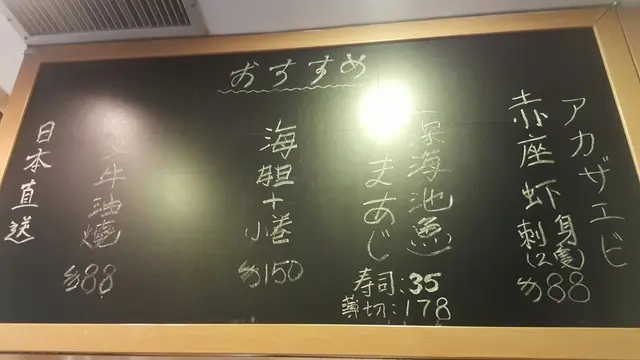 おすすめ
アカザエビ
赤座虾刺身(2隻)
$88
(深海池魚)
まあじ
寿司:35
薄切:178
海胆十小巻
$150
牛油燒
$88
日本直送